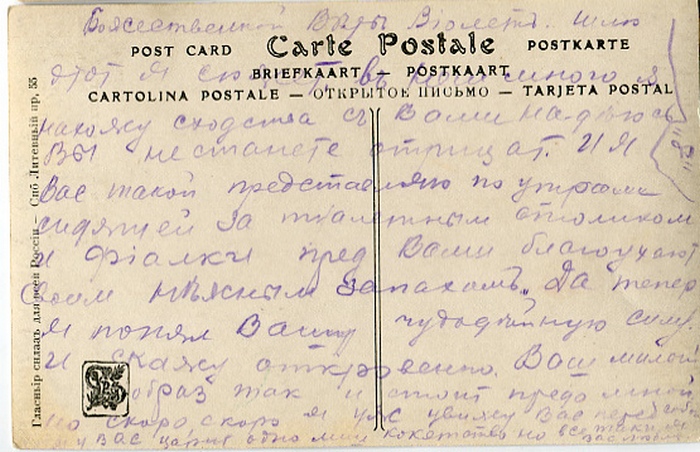 Божественной Вѣры Віолетъ. шлю
POST CARD Carte Postale POSTKARTE
этот я сюжетъ въ много я
BRIEFKAART — POSTKAART
CARTOLINA POSTALE — ОТКРЫТОЕ ПИСЬМО — TARJETA POSTAL
нахожу сходства съ Вами надѣюсь
Вы не станете отрицат. И Я
Вас такой представляю по утрами
сидящей за туалетным столиком
и фіалки пред Вами благоухают
своим нѣжным запахомъ. Да тепер
я понял Вашу чудодѣйную силу
И скажу откровенно. Ваш милой
образ так и стоит предо мной
но скоро скоро я уж увижу Вас перед собой
у Вас одно кокетство но все таки я Вас люблю
Гласныр складъ для всей Россіи — Спб Литейный пр, 55